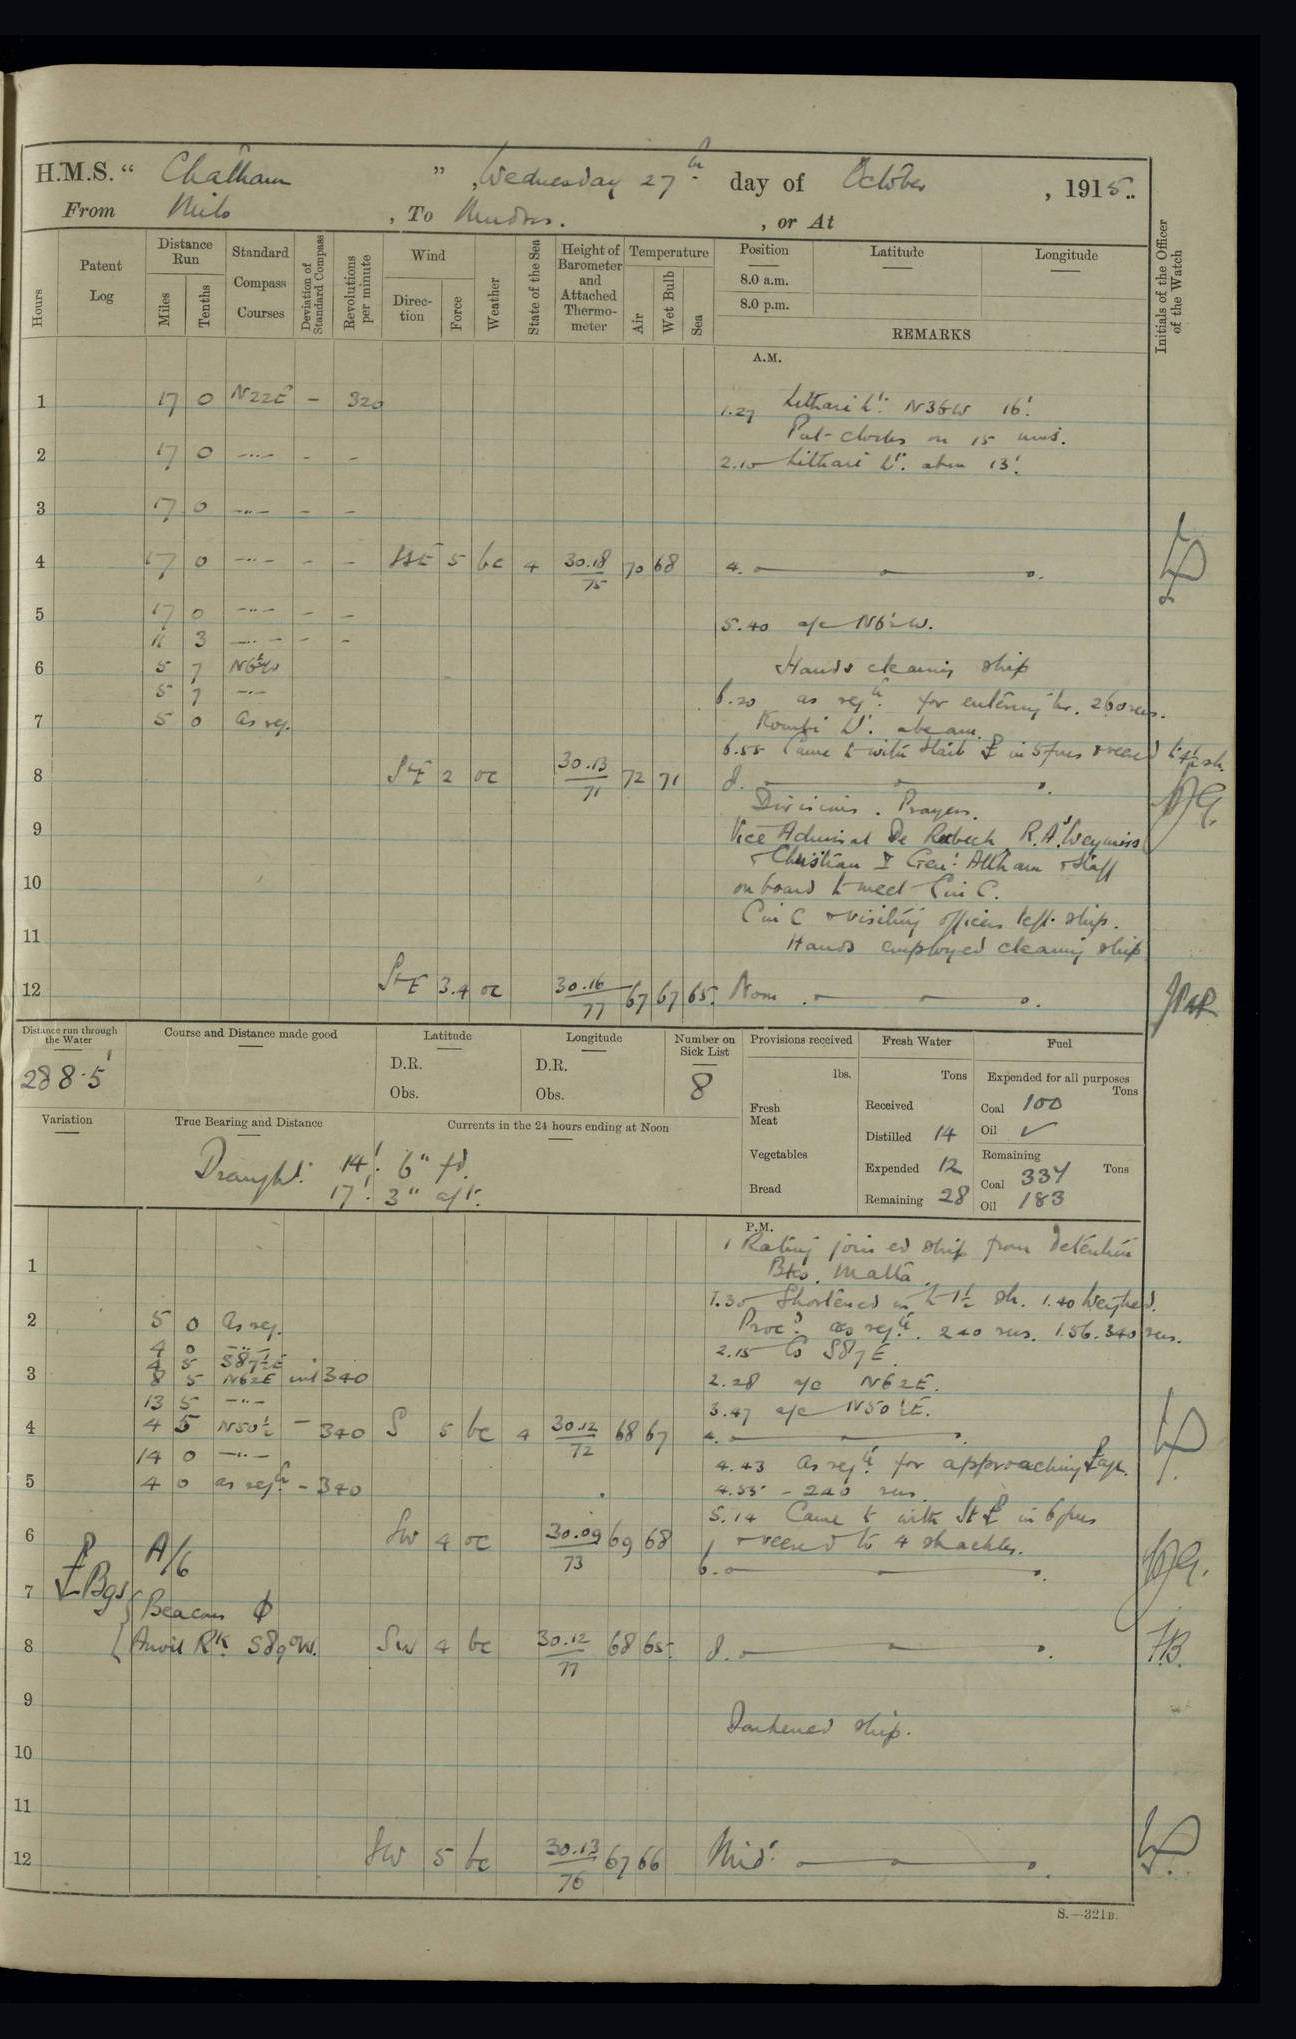 H.M.S. “ Chatham ” , Wednesday 27th day of October , 1915..
From Milo , To Mudros. , or At
Hours
Patent Log
Distance Run
Miles
Tenths
Standard Compass Courses
Deviation of Standard Compass
Revolutions per minute
Wind
Direction
Force
Weather
State of the Sea
Height of Barometer and Attached Thermometer
Temperature
Air
Wet Bulb
Sea
Position
8.0 a.m.
8.0 p.m.
Latitude
Longitude
REMARKS
Initials of the Officer of the Watch
A.M.
1 17 0 N22E - 320
1.27 Lithari Lt. N36W 16'.
Put clocks on 15 mins.
2 17 0 -"- - -
2.10 Lithari Lt. abm 13'.
3 17 0 -"- - -
4 17 0 -"- - - 5 bc 4 30.18/75 70 68 4.
5 17 0 -"- - -
5.40 a/c N6½W.
11 3 -"- - -
6 5 7 N6½W Hands cleaning ship
5 7 -"-
6.20 as reqd. for entering hr. 260 revs.
7 5 0 As req.
Kombi Lt. abeam.
6.55 Came to with Starb in 5 fms & veered to
8 SbE 2 oc 30.13/71 72 71 8.
Divisions. Prayers.
9
Vice Admiral De Robeck, R.A's Weymiss
& Christian & Genl. Altham & Staff
10 on board to meet C in C.
C in C & visiting officers left ship.
11 Hands employed cleaning ship
12 SbE 3.4 oc 30.16/77 67 67 65. Noon
Distance run through the Water
288.5'
Course and Distance made good
Latitude
D.R.
Obs.
Longitude
D.R.
Obs.
Number on Sick List
8
Provisions received
lbs.
Fresh Meat
Vegetables
Bread
Fresh Water
Tons
Received
Distilled 14
Expended 12
Remaining 28
Fuel
Expended for all purposes
Tons
Coal 100
Oil ✓
Remaining
Tons
Coal 337
Oil 183
Variation
True Bearing and Distance
Currents in the 24 hours ending at Noon
Draught. 14'. 6" fd.
17'. 3" aft.
P.M.
1 Rating joined ship from detention
1 Bks. Malta.
1.30 Shortened in to 1½ sh. 1.40 Weighed.
2 5 0 As req.
Procd. as reqd. 240 revs. 1.56. 340 revs.
4 0 -"-
2.15 Co S87E.
4 5 S87½E
3 8 5 N62E 340
2.28 a/c N62E.
13 5 -"-
3.47 a/c N50½E.
4 4 5 N50½ - 340 S 5 bc 4 30.12/72 68 67 4.
14 0 -"-
4.43 As reqd. for approaching
5 4 0 as reqd. - 340
4.55 - 240 revs.
5.14 Came to with St in 6 fms
6 A/6 SW 4 oc 30.09/73 69 68
& veered to 4 shackles.
6.
7 Bgs { Beacons ϕ
8 Anvil Rk. S89°W. SW 4 bc 30.12/77 68 65. 8. F.B.
9
Darkened ship.
10
11
12 SW 5 bc 30.13/76 67 66 Midt.
S.—321B.